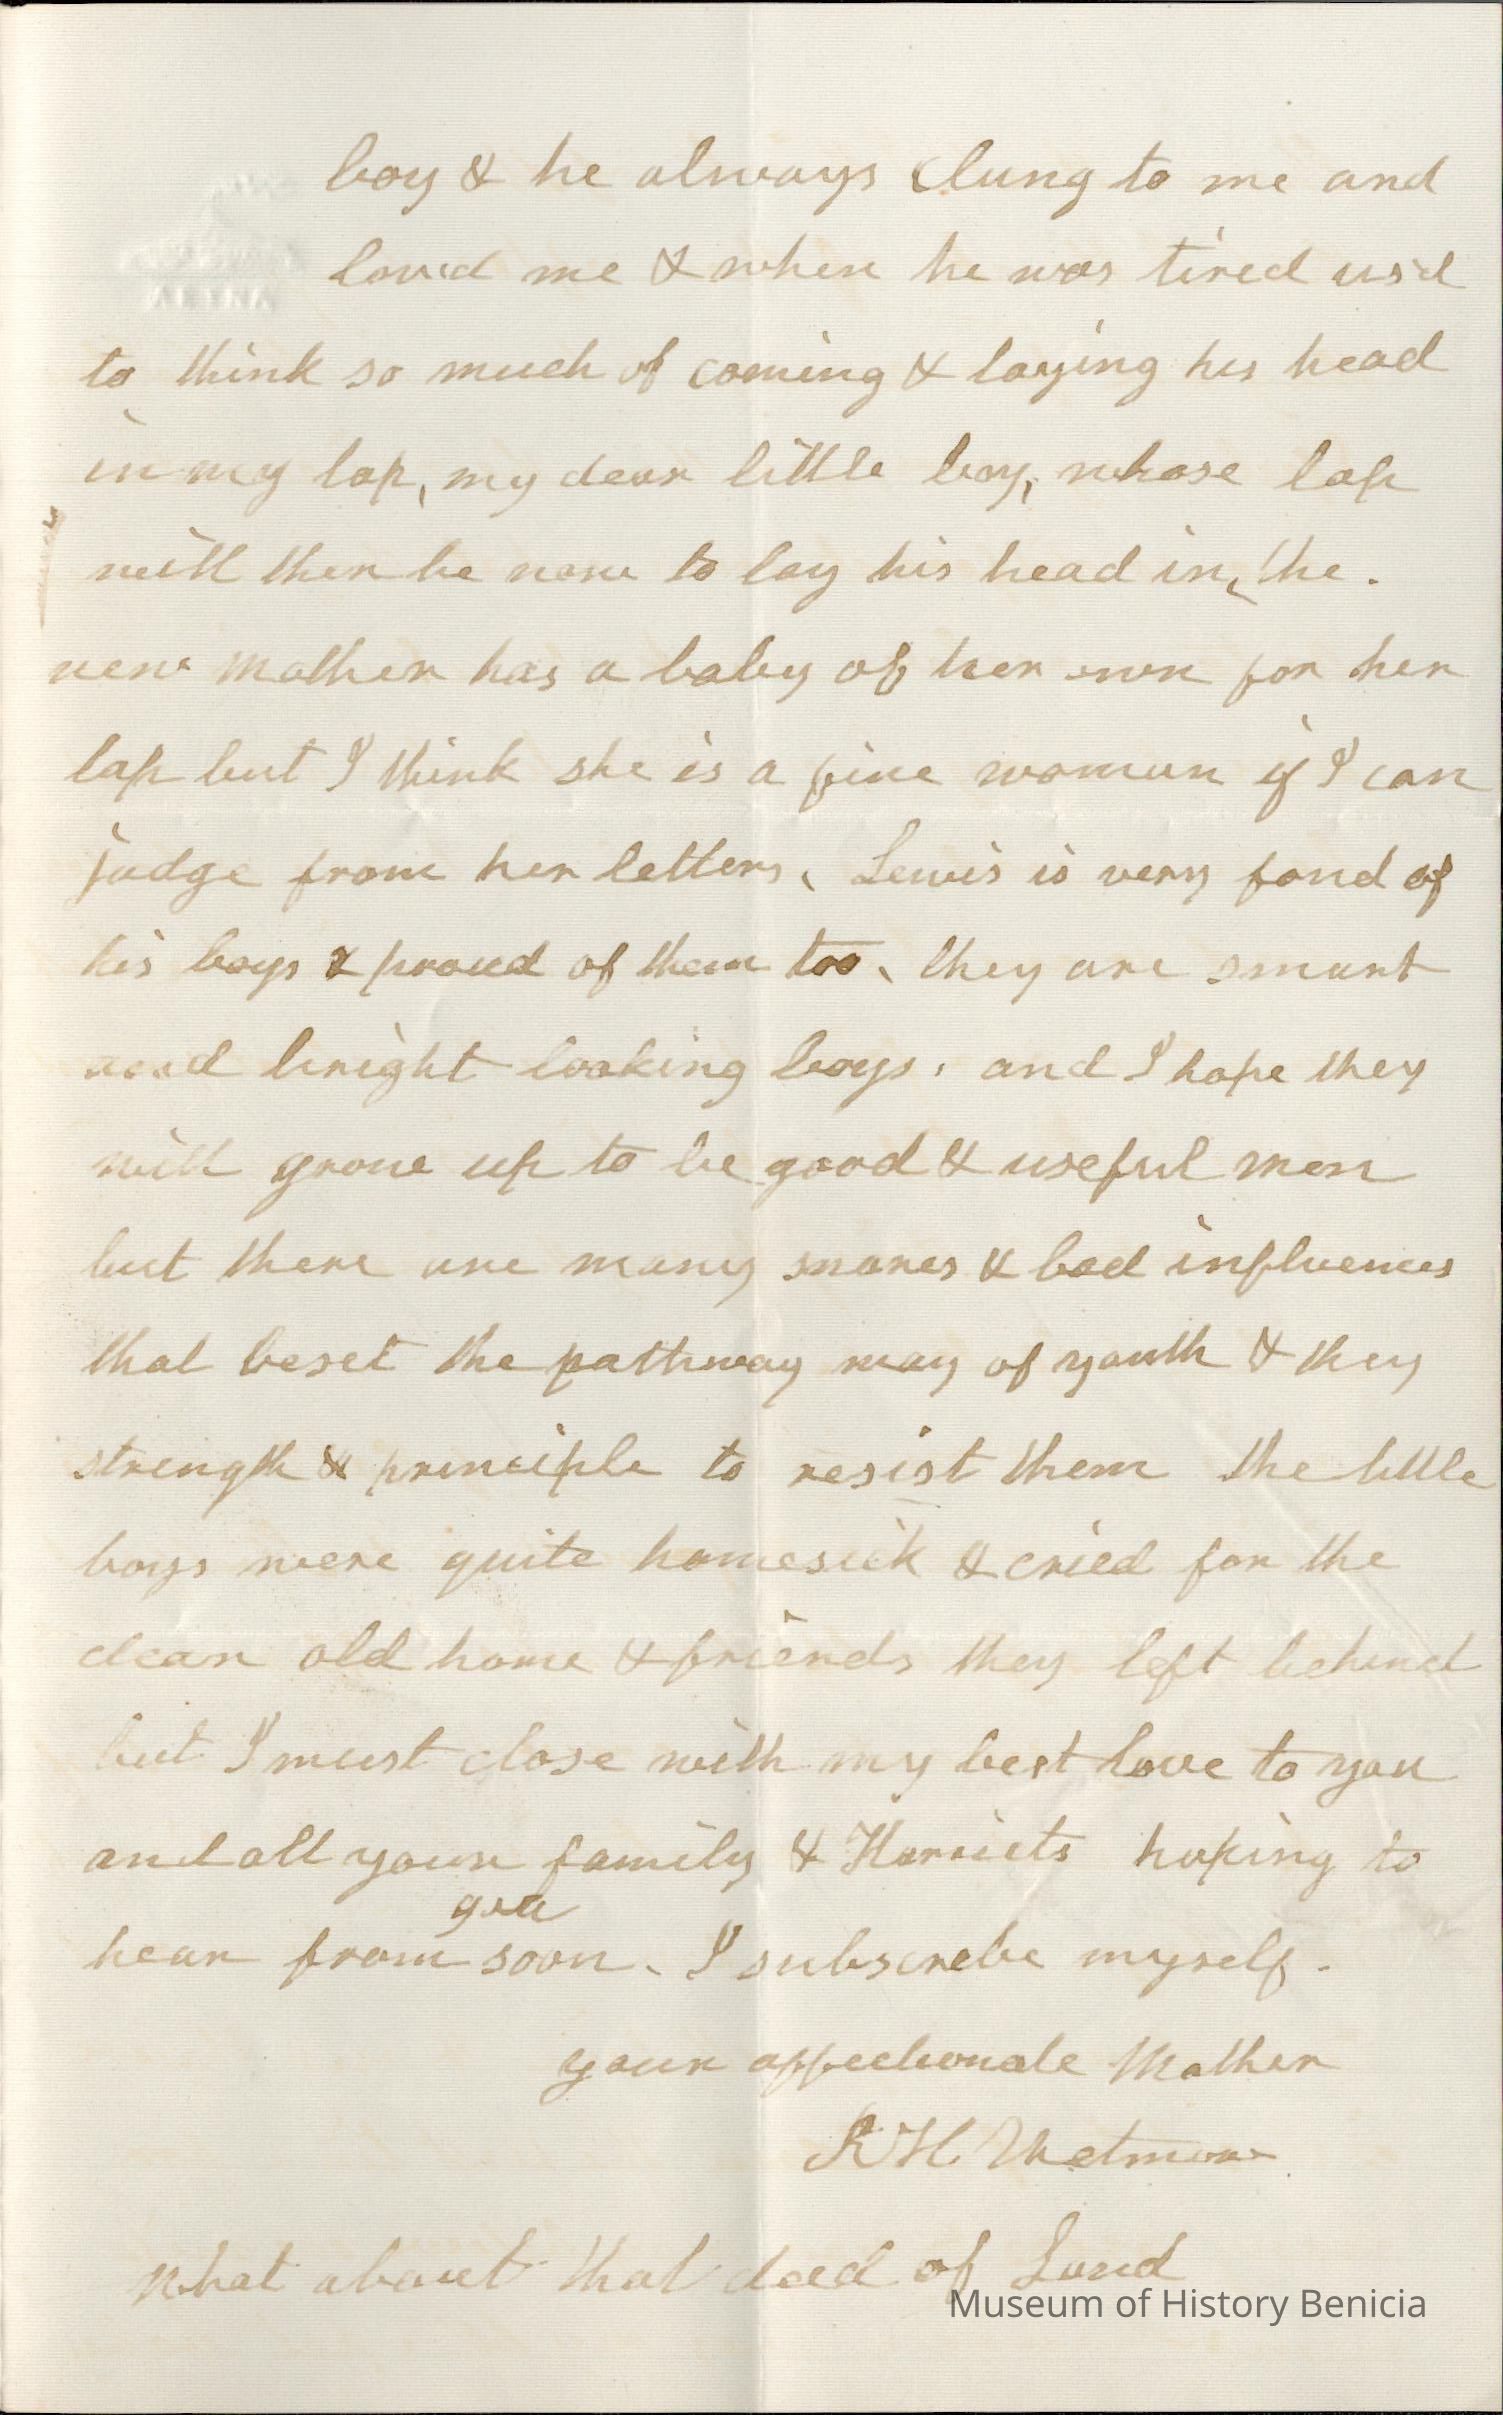 boy & he always clung to me and
loved me & when he was tired us'd
to think so much of coming & laying his head
in my lap, my dear little boy, whose lap
will ther be now to lay his head in, the.
new mother has a baby of her own for her
lap but I think she is a fine woman if I can
judge from her letters, Lewis is very fond of
his boys & proud of them too, they are smart
and bright looking boys, and I hope they
will grow up to be good & useful men
but there are many snares & bad influences
that beset the pathway way of youth & they
strength & principle to resist them the little
boys were quite homesick & cried for the
dear old home & friends they left behind
but I must close with my best love to you
and all your family & Harriets hoping to
you
hear from soon. I subscribe myself.
your affectionate Mother
R H Wetmore
What about that deed of Land
Museum of History Benicia